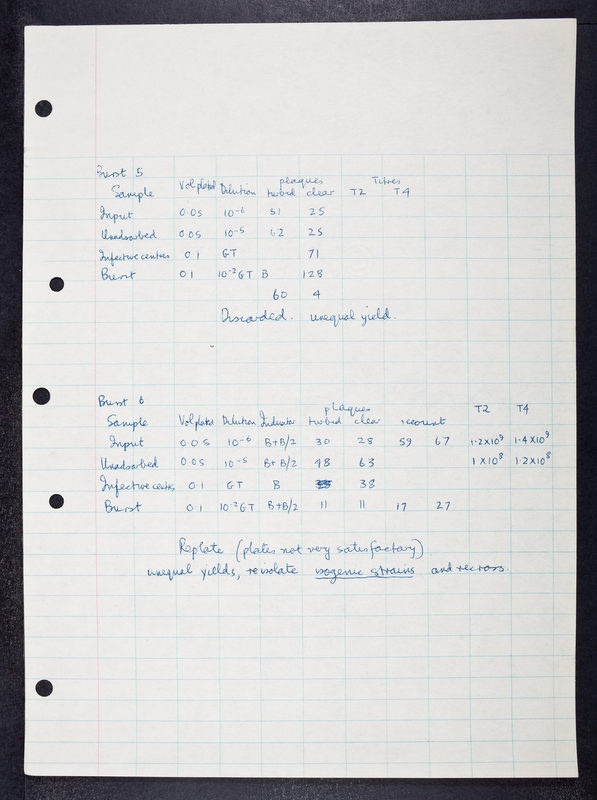 Burst 5
plaques Titres
Sample Vol plated Dilution turbid clear T2 T4
Input 0.05 10⁻⁶ 51 25
Unadsorbed 0.05 10⁻⁵ 62 25
Infective centres 0.1 GT 71
Burst 0.1 10⁻²GT B 128
60 4
Discarded. unequal yield.
Burst 6
plaques T2 T4
Sample Vol plated Dilution Indicator turbid clear recount
Input 0.05 10⁻⁶ B+B/2 30 28 59 67 1.2×10⁹ 1.4×10⁹
Unadsorbed 0.05 10⁻⁵ B+B/2 48 63 1×10⁸ 1.2×10⁸
Infective centres 0.1 GT B 38
Burst 0.1 10⁻²GT B+B/2 11 11 17 27
Replate (plates not very satisfactory)
unequal yields, reisolate isogenic strains and recross.